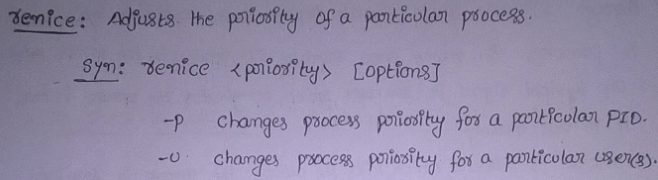 renice: Adjusts the priority of a particular process.
Syn: renice <priority> [options]
-p changes process priority for a particular PID.
-u changes process priority for a particular user(s).